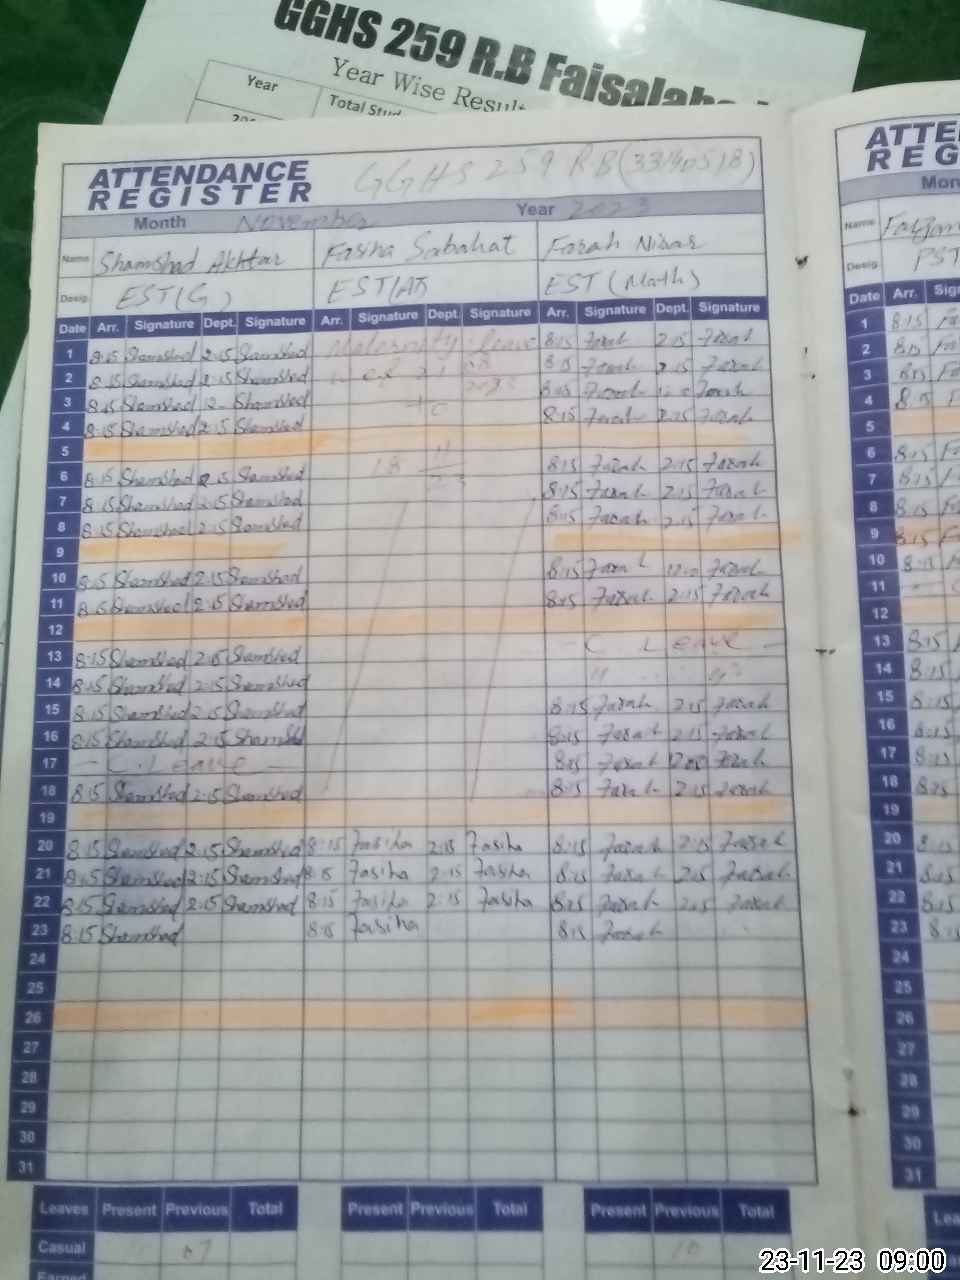 GGHS 259 R.B Faisalab
Year Wise Result
Year Total Stud
ATTENDANCE REGISTER GGHS 259 RB (33140518)
Month November Year 2023
Name Shamshad Akhtar Fasiha Sabahat Farah Nisar
Desig. EST(G) EST(AT) EST (Math)
Date Arr. Signature Dept. Signature Arr. Signature Dept. Signature Arr. Signature Dept. Signature
1 8:15 Shamshad 2:15 Shamshad Maternity leave 8:15 Farah 2:15 Farah
2 8:15 Shamshad 2:15 Shamshad 8:15 Farah 2:15 Farah
3 8:15 Shamshad 12 Shamshad 8:15 Farah Farah
4 8:15 Shamshad 2:15 Shamshad 8:15 Farah 2:15 Farah
5
6 8:15 Shamshad 2:15 Shamshad 18 11 8:15 Farah 2:15 Farah
7 8:15 Shamshad 2:15 Shamshad 23 8:15 Farah 2:15 Farah
8 8:15 Shamshad 2:15 Shamshad 8:15 Farah 2:15 Farah
9
10 8:15 Shamshad 2:15 Shamshad 8:15 Farah Farah
11 8:15 Shamshad 2:15 Shamshad 8:15 Farah 2:15 Farah
12
13 8:15 Shamshad 2:15 Shamshad - C Leave -
14 8:15 Shamshad 2:15 Shamshad " "
15 8:15 Shamshad 2:15 Shamshad 8:15 Farah 2:15 Farah
16 8:15 Shamshad 2:15 Shamshad 8:15 Farah 2:15 Farah
17 - C. Leave - 8:15 Farah 12:00 Farah
18 8:15 Shamshad 2:15 Shamshad 8:15 Farah 2:15 Farah
19
20 8:15 Shamshad 2:15 Shamshad 8:15 Fasiha 2:15 Fasiha 8:15 Farah 2:15 Farah
21 8:15 Shamshad 2:15 Shamshad 8:15 Fasiha 2:15 Fasiha 8:15 Farah 2:15 Farah
22 8:15 Shamshad 2:15 Shamshad 8:15 Fasiha 2:15 Fasiha 8:15 Farah 2:15 Farah
23 8:15 Shamshad 8:15 Fasiha 8:15 Farah
24
25
26
27
28
29
30
31
Leaves Present Previous Total Present Previous Total Present Previous Total
Casual 07 10
Earned
ATTE
REG
Mon
Name
Desig. PST
Date Arr. Sig
1 8:15 Fa
2 8:15 Fa
3 8:15 Fa
4 8:15
5
6 8:15
7 8:15
8 8:15
9 8:15
10 8:15
11
12
13 8:15
14 8:15
15 8:15
16 8:15
17 8:15
18 8:15
19
20 8:15
21 8:15
22 8:15
23 8:15
24
25
26
27
28
29
30
31
Lea
23-11-23 09:00